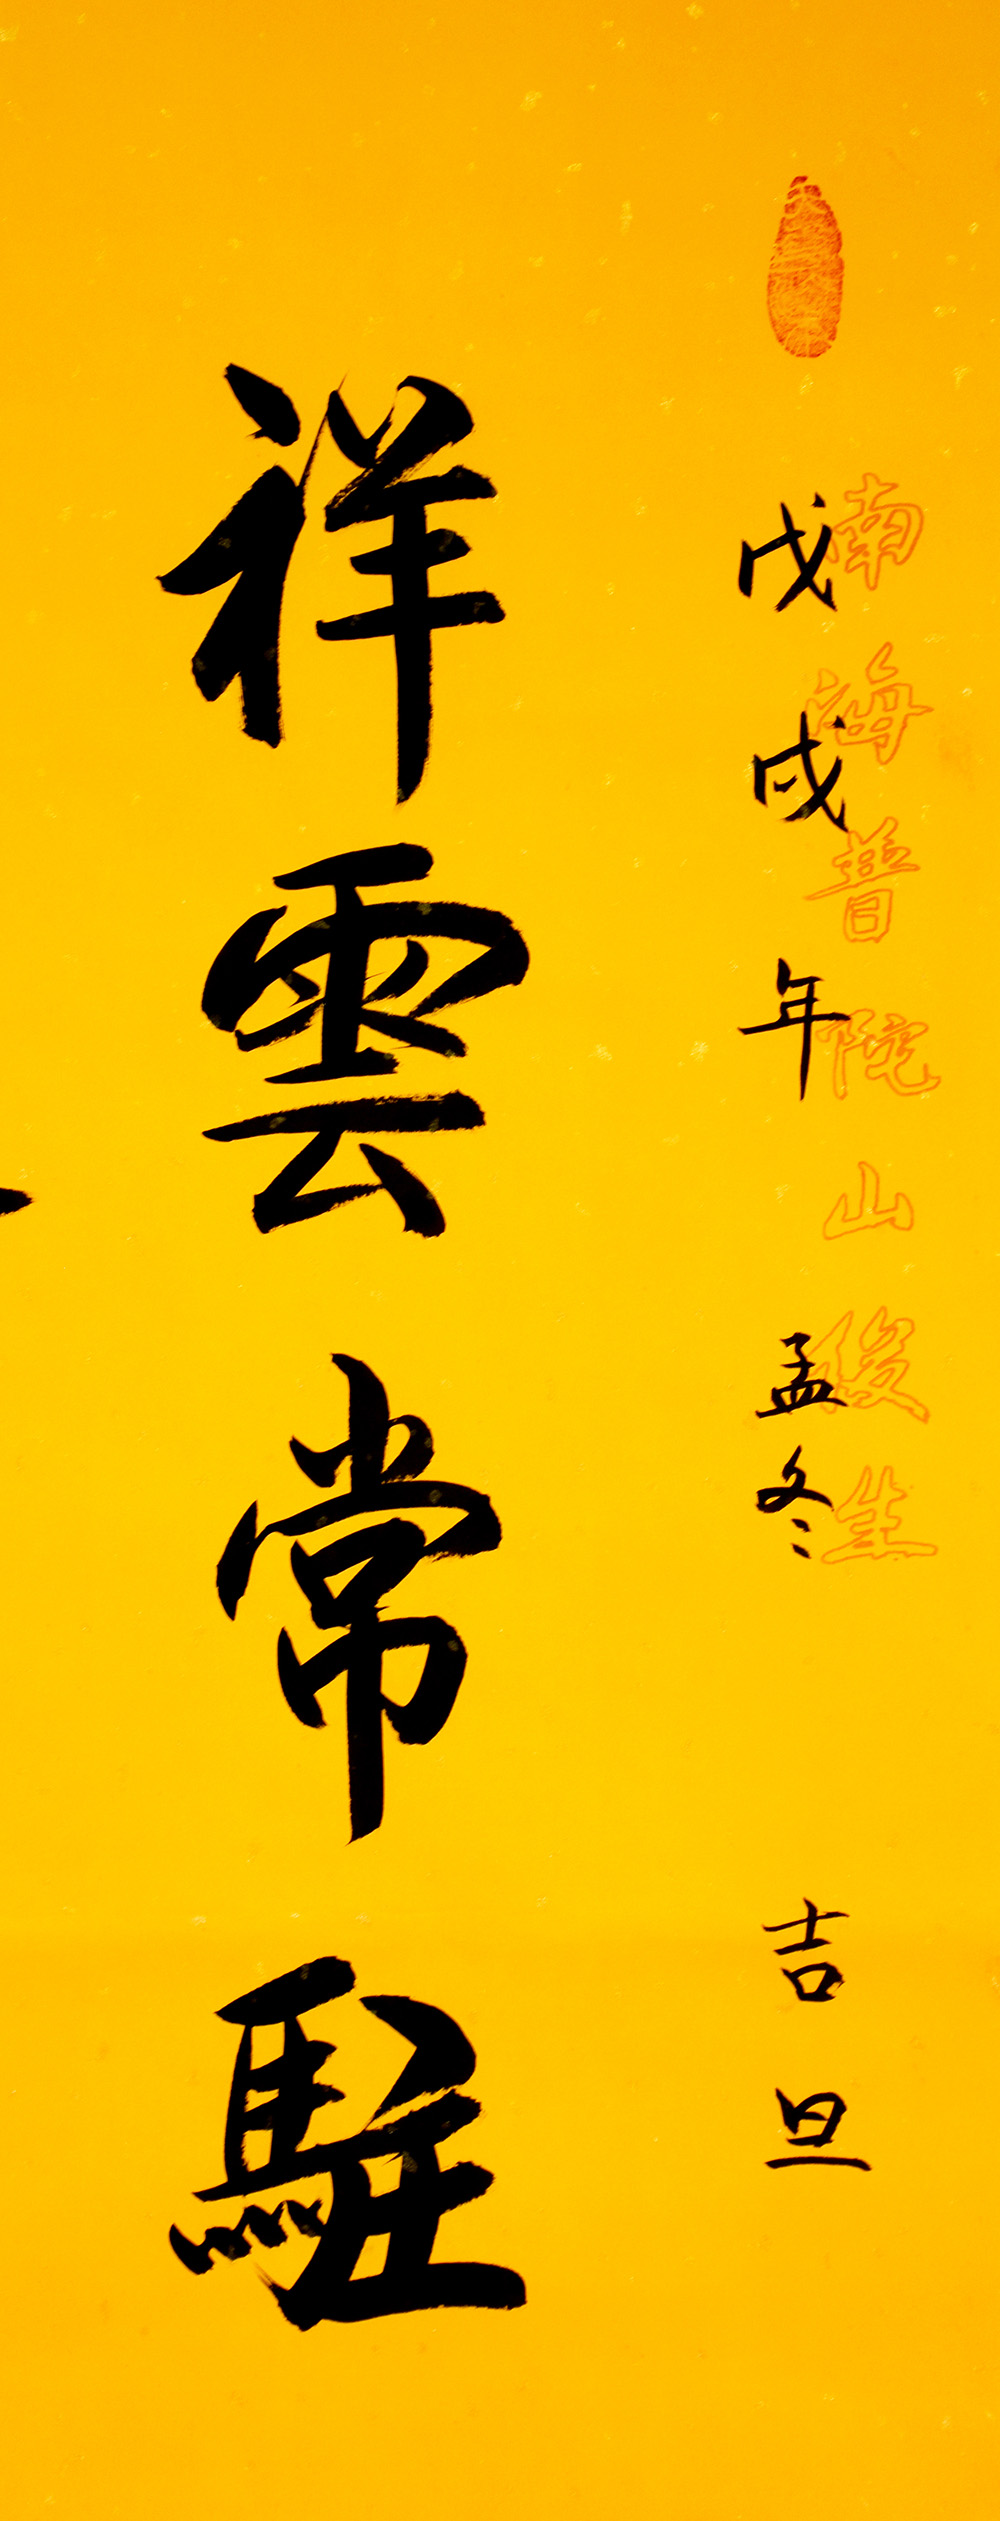 南海普陀山俊生
戊戌年孟冬吉旦
祥雲常駐